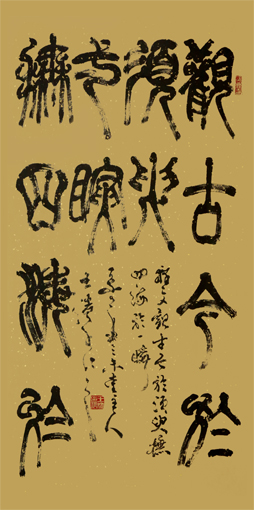 觀古今於
須臾
撫四海於
弌瞬
釋文觀古今於須臾撫
四海於一瞬
主人